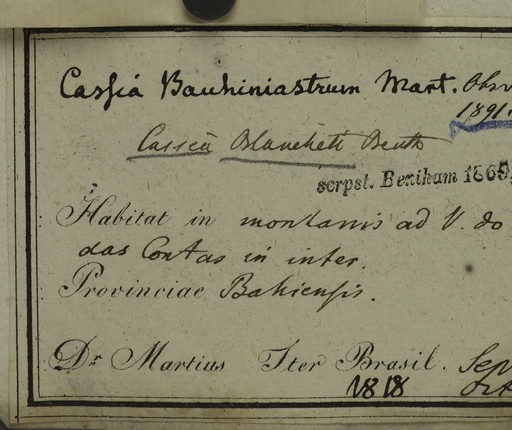 Cassia Bauhiniastrum Mart. Obsv
1891.
Cassia Blancheti Benth
scrpst. Bentham 1865,
Habitat in montanis ad V. do
das Contas in inter.
Provinciae Bahiensis.
Dr Martius Iter Brasil. Sep
1818 Oct